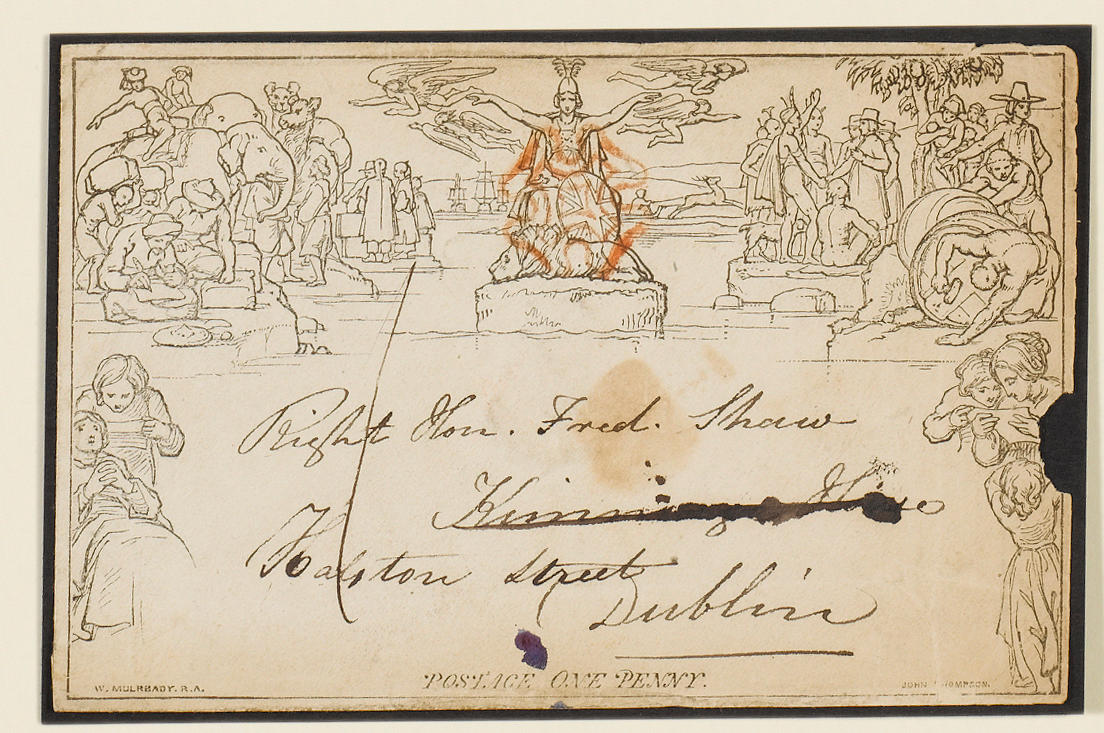 Right Hon. Fred. Shaw
Halston Street
Dublin
POSTAGE ONE PENNY.
W. MULREADY. R.A.
JOHN THOMPSON.